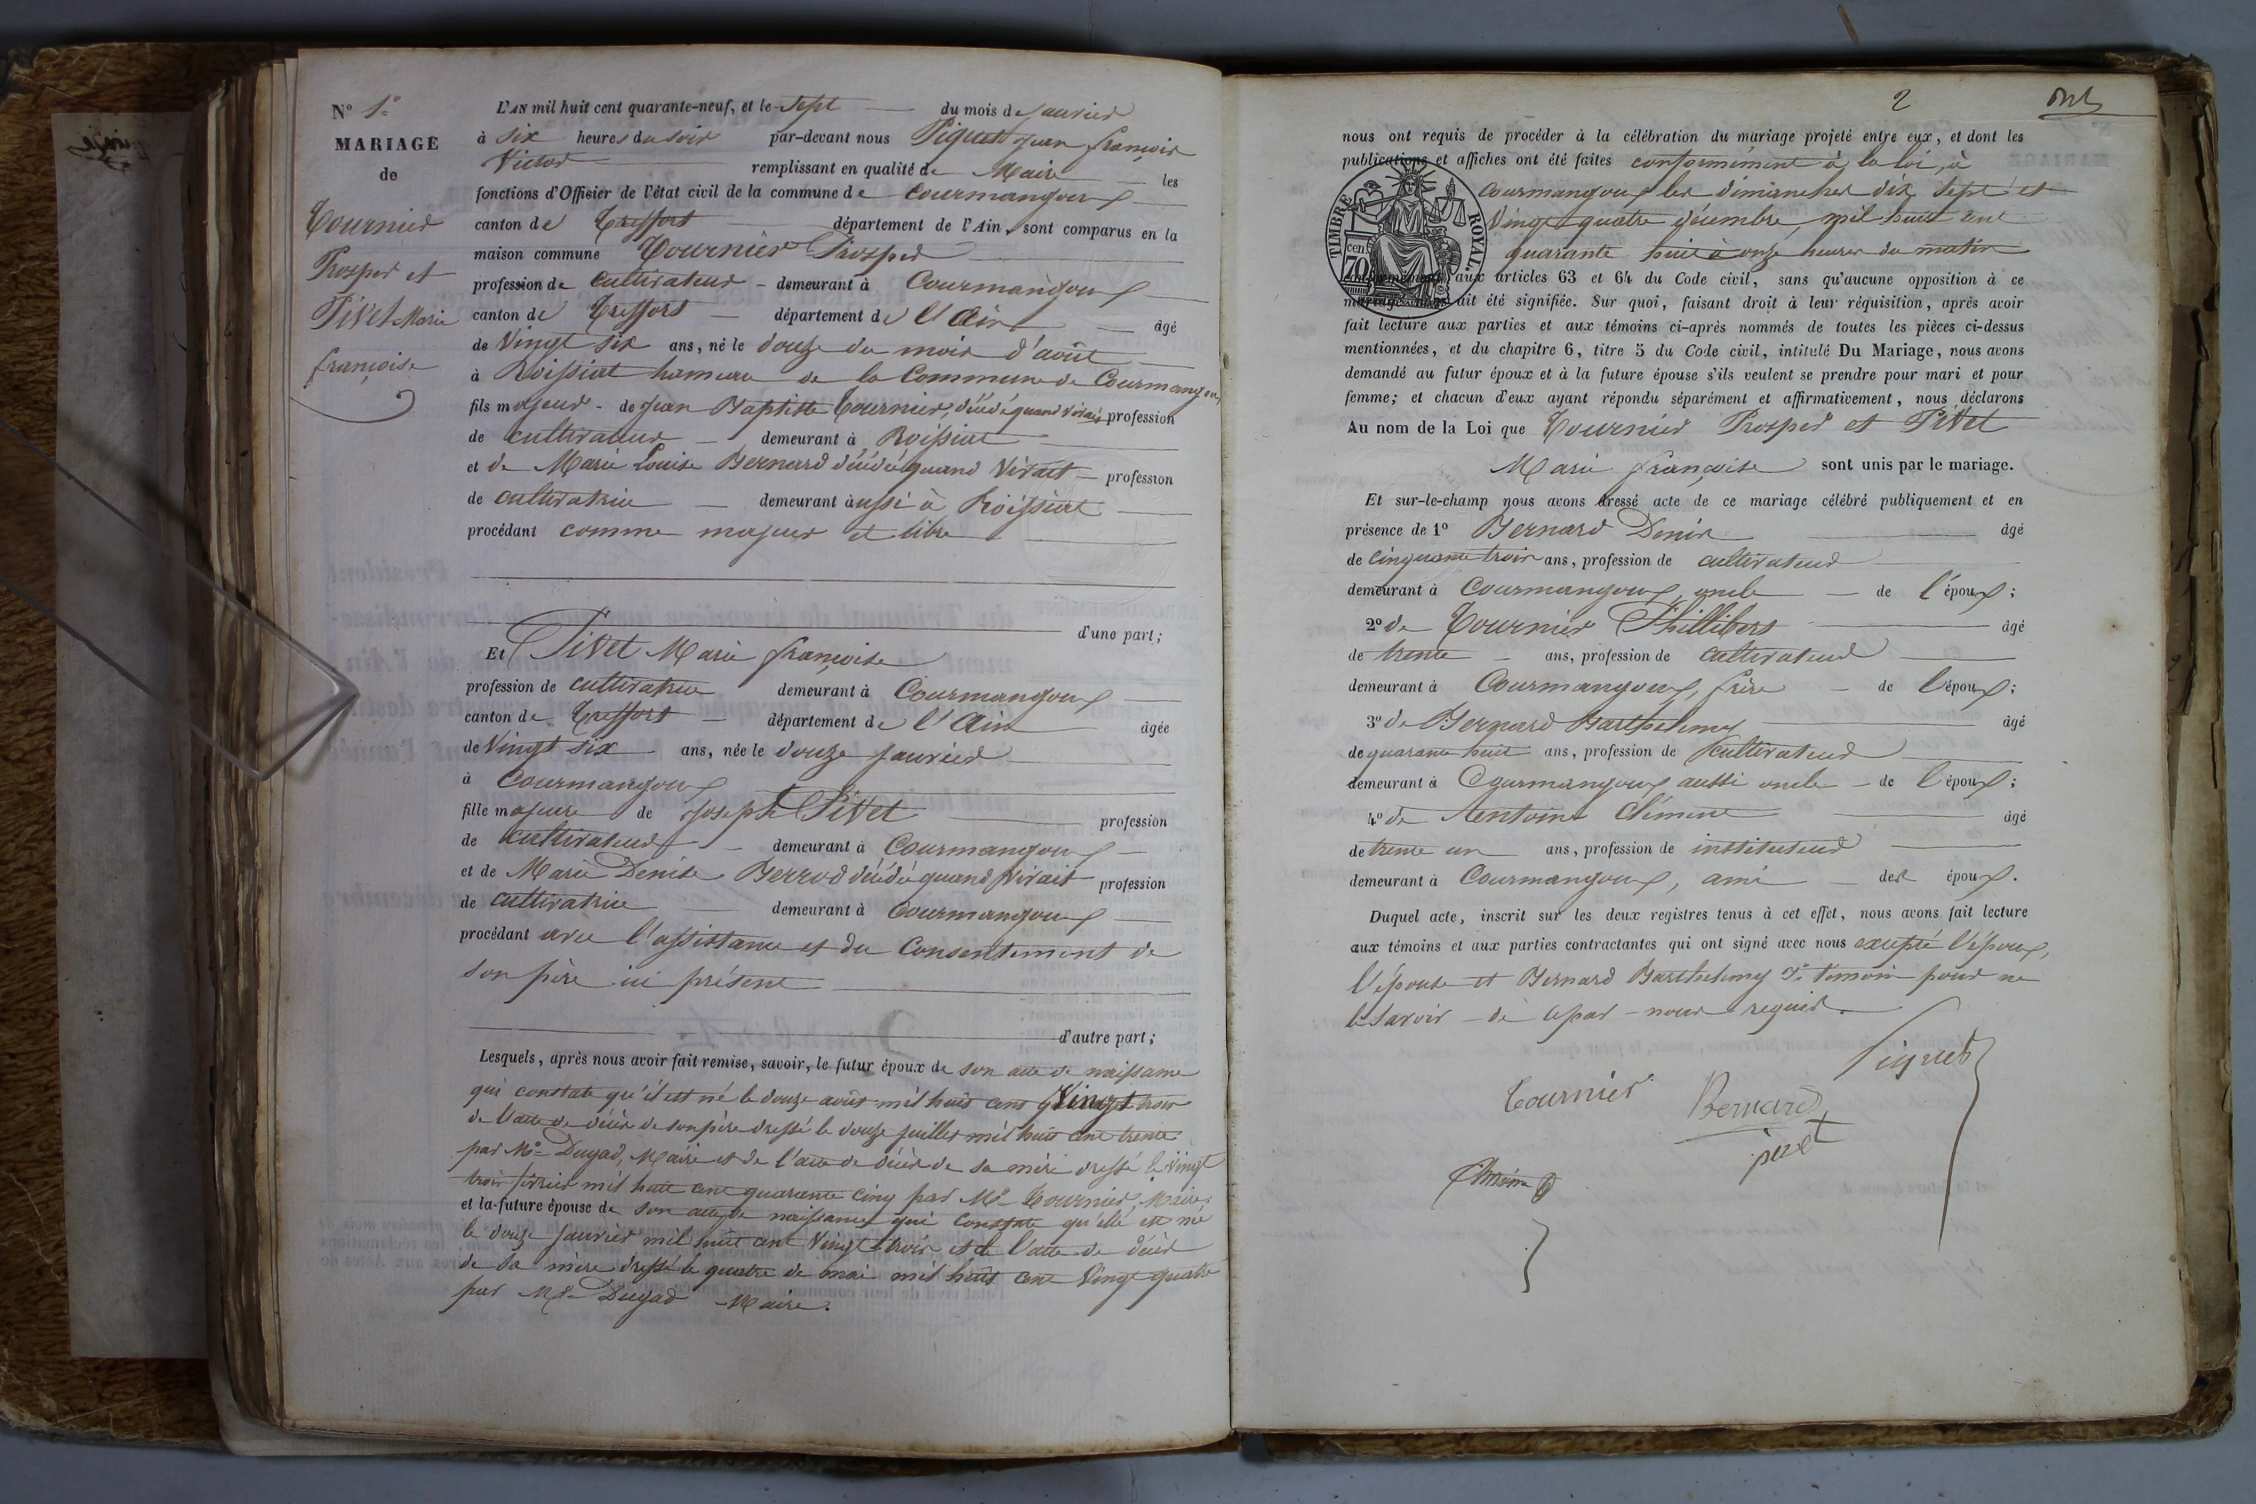 N° 1er
MARIAGE
de
Tournier
Prosper et
Pivet Marie
françoise
L'AN mil huit cent quarante-neuf, et le sept du mois de janvier
à six heures du soir par-devant nous Piquet jean françois
Victor remplissant en qualité de Maire les
fonctions d'Officier de l'état civil de la commune de Courmangoux
canton de Treffort département de l'Ain, sont comparus en la
maison commune Tournier Prosper
profession de cultivateur demeurant à Courmangoux
canton de Treffort département de l'Ain âgé
de Vingt six ans, né le douze du mois d'août
à Roissiat hameau de la Commune de Courmangoux
fils majeur de jean Baptiste Tournier, décédé quand vivait profession
de cultivateur demeurant à Roissiat
et de Marie Louise Bernard décédé quand Vivait profession
de cultivatrice demeurant aussi à Roissiat
procédant comme majeur et libre
d'une part;
Et Pivet Marie françoise
profession de cultivatrice demeurant à Courmangoux
canton de Treffort département de l'Ain âgée
de Vingt six ans, née le douze janvier
à Courmangoux
fille majeure de joseph Pivet profession
de cultivateur demeurant à Courmangoux
et de Marie Denise Berrod décédé quand Vivait profession
de cultivatrice demeurant à Courmangoux
procédant avec l'assistance et du Consentement de
son père ici présent
d'autre part;
Lesquels, après nous avoir fait remise, savoir, le futur époux de son acte de naissance
qui constate qu'il est né le douze août mil huit cent Vingt trois
de l'acte de décès de son père dressé le douze juillet mil huit cent trente
par Mr Dugad, Maire et de l'acte de décès de sa mère dressé le vingt
trois février mil huit cent quarante cinq par Mr Tournier, Maire,
et la future épouse de son acte de naissance qui constate qu'elle est né
le douze janvier mil huit cent Vingt trois et de l'acte de décès
de sa mère dressé le quatre de mai mil huit cent Vingt quatre
par Mr Dugad Maire.
2
nous ont requis de procéder à la célébration du mariage projeté entre eux, et dont les
publications et affiches ont été faites conformément à la loi, à
Courmangoux les dimanches dix sept et
Vingt quatre décembre, mil huit cent
quarante huit à onze heures du matin
TIMBRE ROYAL
70 cen
conformément aux articles 63 et 64 du Code civil, sans qu'aucune opposition à ce
mariage nous ait été signifiée. Sur quoi, faisant droit à leur réquisition, après avoir
fait lecture aux parties et aux témoins ci-après nommés de toutes les pièces ci-dessus
mentionnées, et du chapitre 6, titre 5 du Code civil, intitulé Du Mariage, nous avons
demandé au futur époux et à la future épouse s'ils veulent se prendre pour mari et pour
femme; et chacun d'eux ayant répondu séparément et affirmativement, nous déclarons
Au nom de la Loi que Tournier Prosper et Pivet
Marie françoise sont unis par le mariage.
Et sur-le-champ nous avons dressé acte de ce mariage célébré publiquement et en
présence de 1° Bernard Denis âgé
de cinquante trois ans, profession de cultivateur
demeurant à Courmangoux, oncle de l'époux;
2° de Tournier Phillibert âgé
de trente ans, profession de cultivateur
demeurant à Courmangoux, frère de l'époux;
3° de Bernard Barthelemy âgé
de quarante huit ans, profession de cultivateur
demeurant à Courmangoux aussi oncle de l'époux;
4° de Antoine Clémence âgé
de trente un ans, profession de instituteur
demeurant à Courmangoux, ami des époux.
Duquel acte, inscrit sur les deux registres tenus à cet effet, nous avons fait lecture
aux témoins et aux parties contractantes qui ont signé avec nous excepté l'époux,
l'épouse et Bernard Barthelemy 3e témoin pour ne
le savoir de ce par nous requis.
Piquet
Tournier
Bernard
pivet